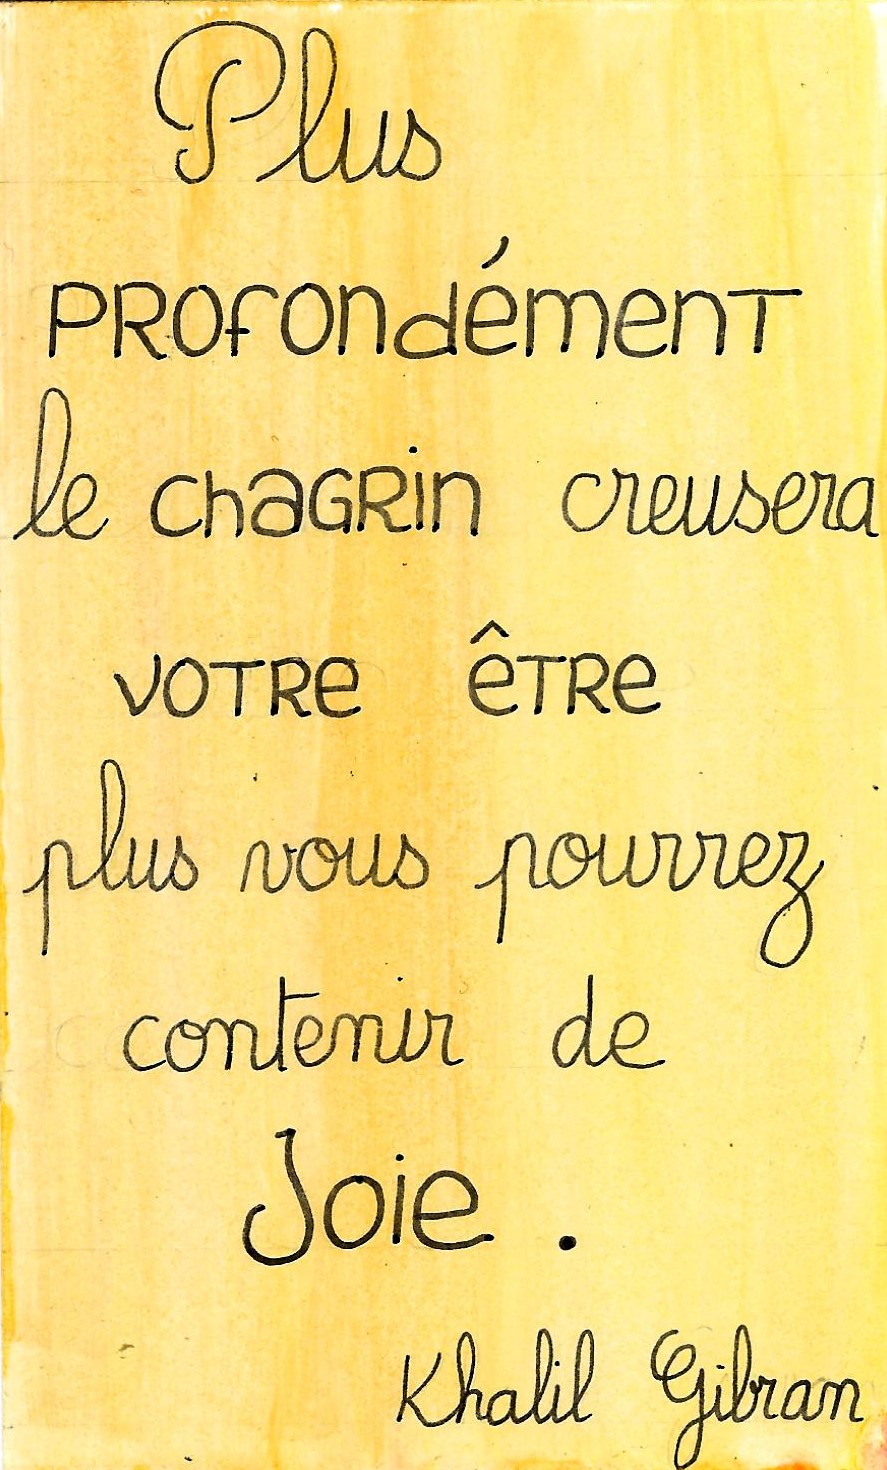 Plus
PROfONdément
le chAGRin creusera
vOTRe êTRe
plus vous pourrez
contenir de
Joie .
Khalil Gibran